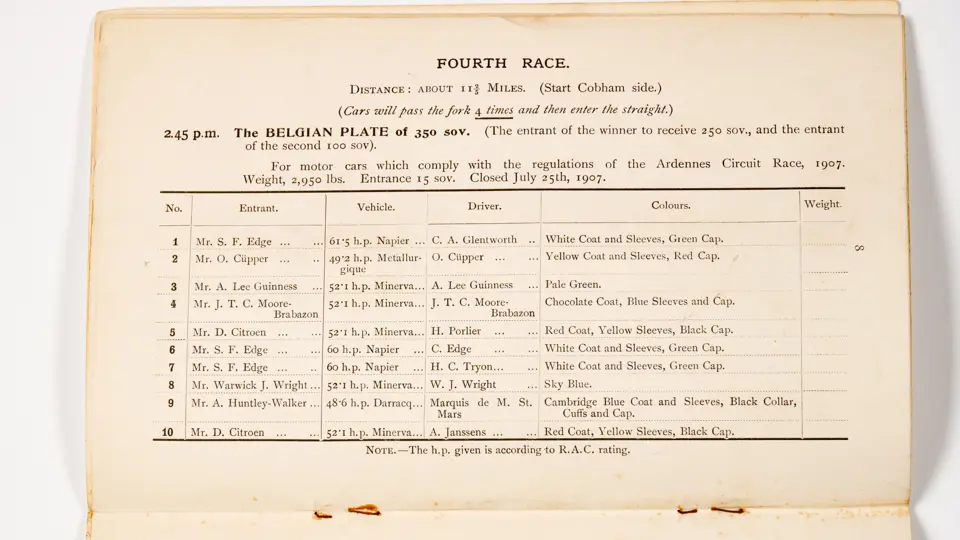 FOURTH RACE.
DISTANCE: ABOUT 11¾ MILES. (Start Cobham side.)
(Cars will pass the fork 4 times and then enter the straight.)
2.45 p.m. The BELGIAN PLATE of 350 sov. (The entrant of the winner to receive 250 sov., and the entrant
of the second 100 sov).
For motor cars which comply with the regulations of the Ardennes Circuit Race, 1907.
Weight, 2,950 lbs. Entrance 15 sov. Closed July 25th, 1907.
No. Entrant. Vehicle. Driver. Colours. Weight.
1 Mr. S. F. Edge ... ... 61·5 h.p. Napier ... C. A. Glentworth .. White Coat and Sleeves, Green Cap.
2 Mr. O. Cüpper ... .. 49·2 h.p. Metallur- O. Cüpper ... ... Yellow Coat and Sleeves, Red Cap.
gique
3 Mr. A. Lee Guinness ... 52·1 h.p. Minerva... A. Lee Guinness ... Pale Green.
4 Mr. J. T. C. Moore- 52·1 h.p. Minerva... J. T. C. Moore- Chocolate Coat, Blue Sleeves and Cap.
Brabazon Brabazon
5 Mr. D. Citroen ... ... 52·1 h.p. Minerva... H. Porlier ... ... Red Coat, Yellow Sleeves, Black Cap.
6 Mr. S. F. Edge ... .. 60 h.p. Napier ... C. Edge ... ... White Coat and Sleeves, Green Cap.
7 Mr. S. F. Edge ... .. 60 h.p. Napier ... H. C. Tryon... ... White Coat and Sleeves, Green Cap.
8 Mr. Warwick J. Wright ... 52·1 h.p. Minerva... W. J. Wright ... Sky Blue.
9 Mr. A. Huntley-Walker ... 48·6 h.p. Darracq... Marquis de M. St. Cambridge Blue Coat and Sleeves, Black Collar,
Mars Cuffs and Cap.
10 Mr. D. Citroen ... ... 52·1 h.p. Minerva... A. Janssens ... ... Red Coat, Yellow Sleeves, Black Cap.
NOTE.—The h.p. given is according to R.A.C. rating.
8